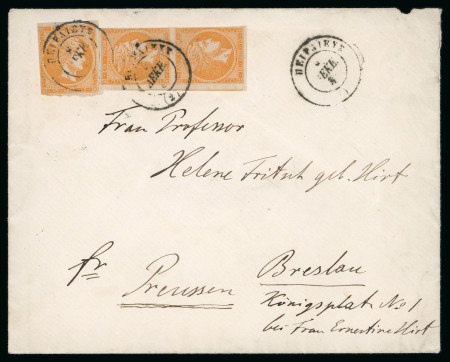 ΠΕΙΡΑΙΕΥΣ
ΠΕΙΡΑΙΕΥΣ
ΔΕΚΕ.
(2)
ΠΕΙΡΑΙΕΥΣ
ΔΕΚΕ.
Frau Professor
Helene Fritsch geb. Hirt
fr
Preussen
Breslau
Königsplatz No 1
bei Frau Ernestine Hirt